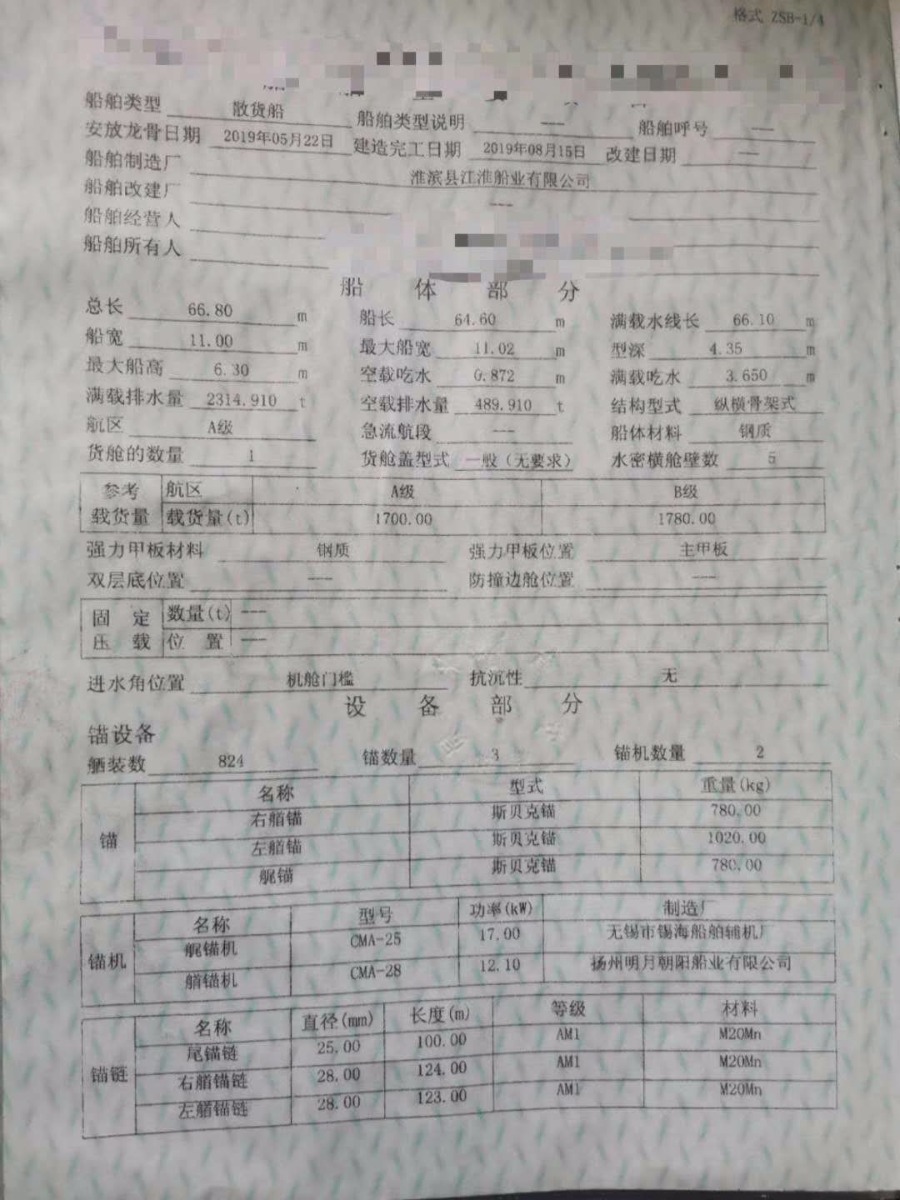 格式 ZSH-1/4
船舶类型 散货船 船舶类型说明 --- 船舶呼号 ---
安放龙骨日期 2019年05月22日 建造完工日期 2019年08月15日 改建日期 ---
船舶制造厂 淮滨县江淮船业有限公司
船舶改建厂 ---
船舶经营人
船舶所有人
船 体 部 分
总长 66.80 m 船长 64.60 m 满载水线长 66.10 m
船宽 11.00 m 最大船宽 11.02 m 型深 4.35 m
最大船高 6.30 m 空载吃水 0.872 m 满载吃水 3.650 m
满载排水量 2314.910 t 空载排水量 489.910 t 结构型式 纵横骨架式
航区 A级 急流航段 --- 船体材料 钢质
货舱的数量 1 货舱盖型式 一般（无要求） 水密横舱壁数 5
参考 航区 A级 B级
载货量 载货量(t) 1700.00 1780.00
强力甲板材料 钢质 强力甲板位置 主甲板
双层底位置 --- 防撞边舱位置 ---
固 定 数量(t) ---
压 载 位 置 ---
进水角位置 机舱门槛 抗沉性 无
设 备 部 分
锚设备
舾装数 824 锚数量 3 锚机数量 2
名称 型式 重量(kg)
右艏锚 斯贝克锚 780.00
锚 左艏锚 斯贝克锚 1020.00
艉锚 斯贝克锚 780.00
名称 型号 功率(kW) 制造厂
锚机 艉锚机 CMA-25 17.00 无锡市锡海船舶辅机厂
艏锚机 CMA-28 12.10 扬州明月朝阳船业有限公司
名称 直径(mm) 长度(m) 等级 材料
尾锚链 25.00 100.00 AM1 M20Mn
锚链 右艏锚链 28.00 124.00 AM1 M20Mn
左艏锚链 28.00 123.00 AM1 M20Mn